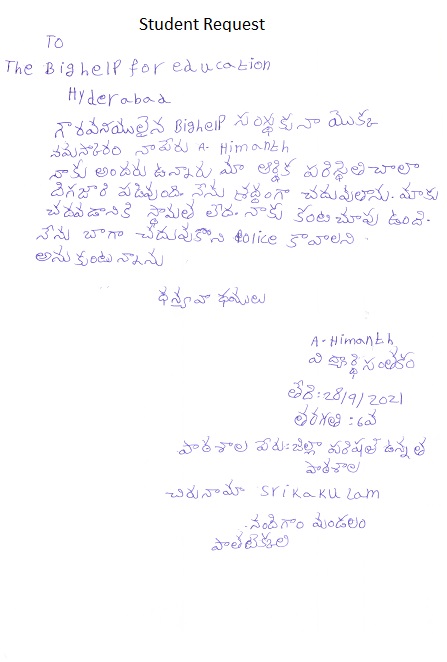 Student Request
To
The Bighelp for education
Hyderabad
గౌరవనీయులైన Bighelp సంస్థకు నా యొక్క
నమస్కారం నా పేరు A. Himanth
నాకు అందరు ఉన్నారు మా ఆర్థిక పరిస్థితి చాలా
దిగజారి పడివుంది. నేను శ్రద్ధంగా చదువుతాను. మాకు
చదవడానికి స్థామత లేదు. నాకు కంటి చూపు ఉంది.
నేను బాగా చదువుకొని Police కావాలని
అనుకుంటున్నాను
ధన్యవాధములు
A. Himanth
విద్యార్థి సంతకం
తేది: 28/9/2021
తరగతి: 6వ
పాఠశాల పేరు: జిల్లా పరిషత్ ఉన్నత
పాఠశాల
చిరునామా Srikakulam
నందిగాం మండలం
పాతటెక్కలి